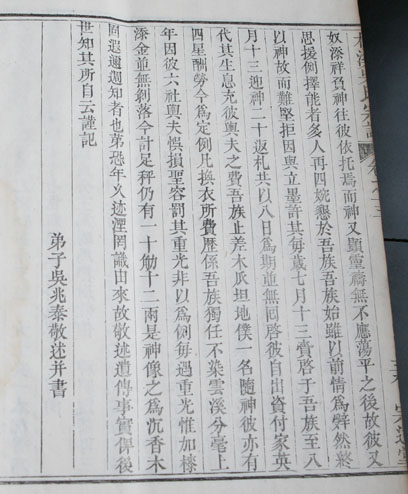 奴添祥負神往彼依托焉而神又顯靈禱無不應蕩平之後故彼又
思援例擇能者多人再四婉懇於吾族吾族始雖以前情為辭然終
以神故而難堅拒因與立墨許其每歲七月十三賫啓于吾族至八
月十三迎神二十返札共以八日為期重無同啓彼自出資付家英
代其生息充彼輿夫之費吾族止差木瓜坦地僕一名隨神彼亦有
四星酬勞今為定例凡換衣所費歷係吾族獨任不染雲溪分毫上
年因彼六社輿夫悞損聖容罰其重光非以為例每過重光惟加櫒
添金並無創落今計足秤仍有一十觔十二兩是神像之為沉香木
固遐邇週知者也第恐年久迹湮罔識由來故敬述遺傳事實俾後
世知其所自云謹記
弟子吳兆泰敬述并書